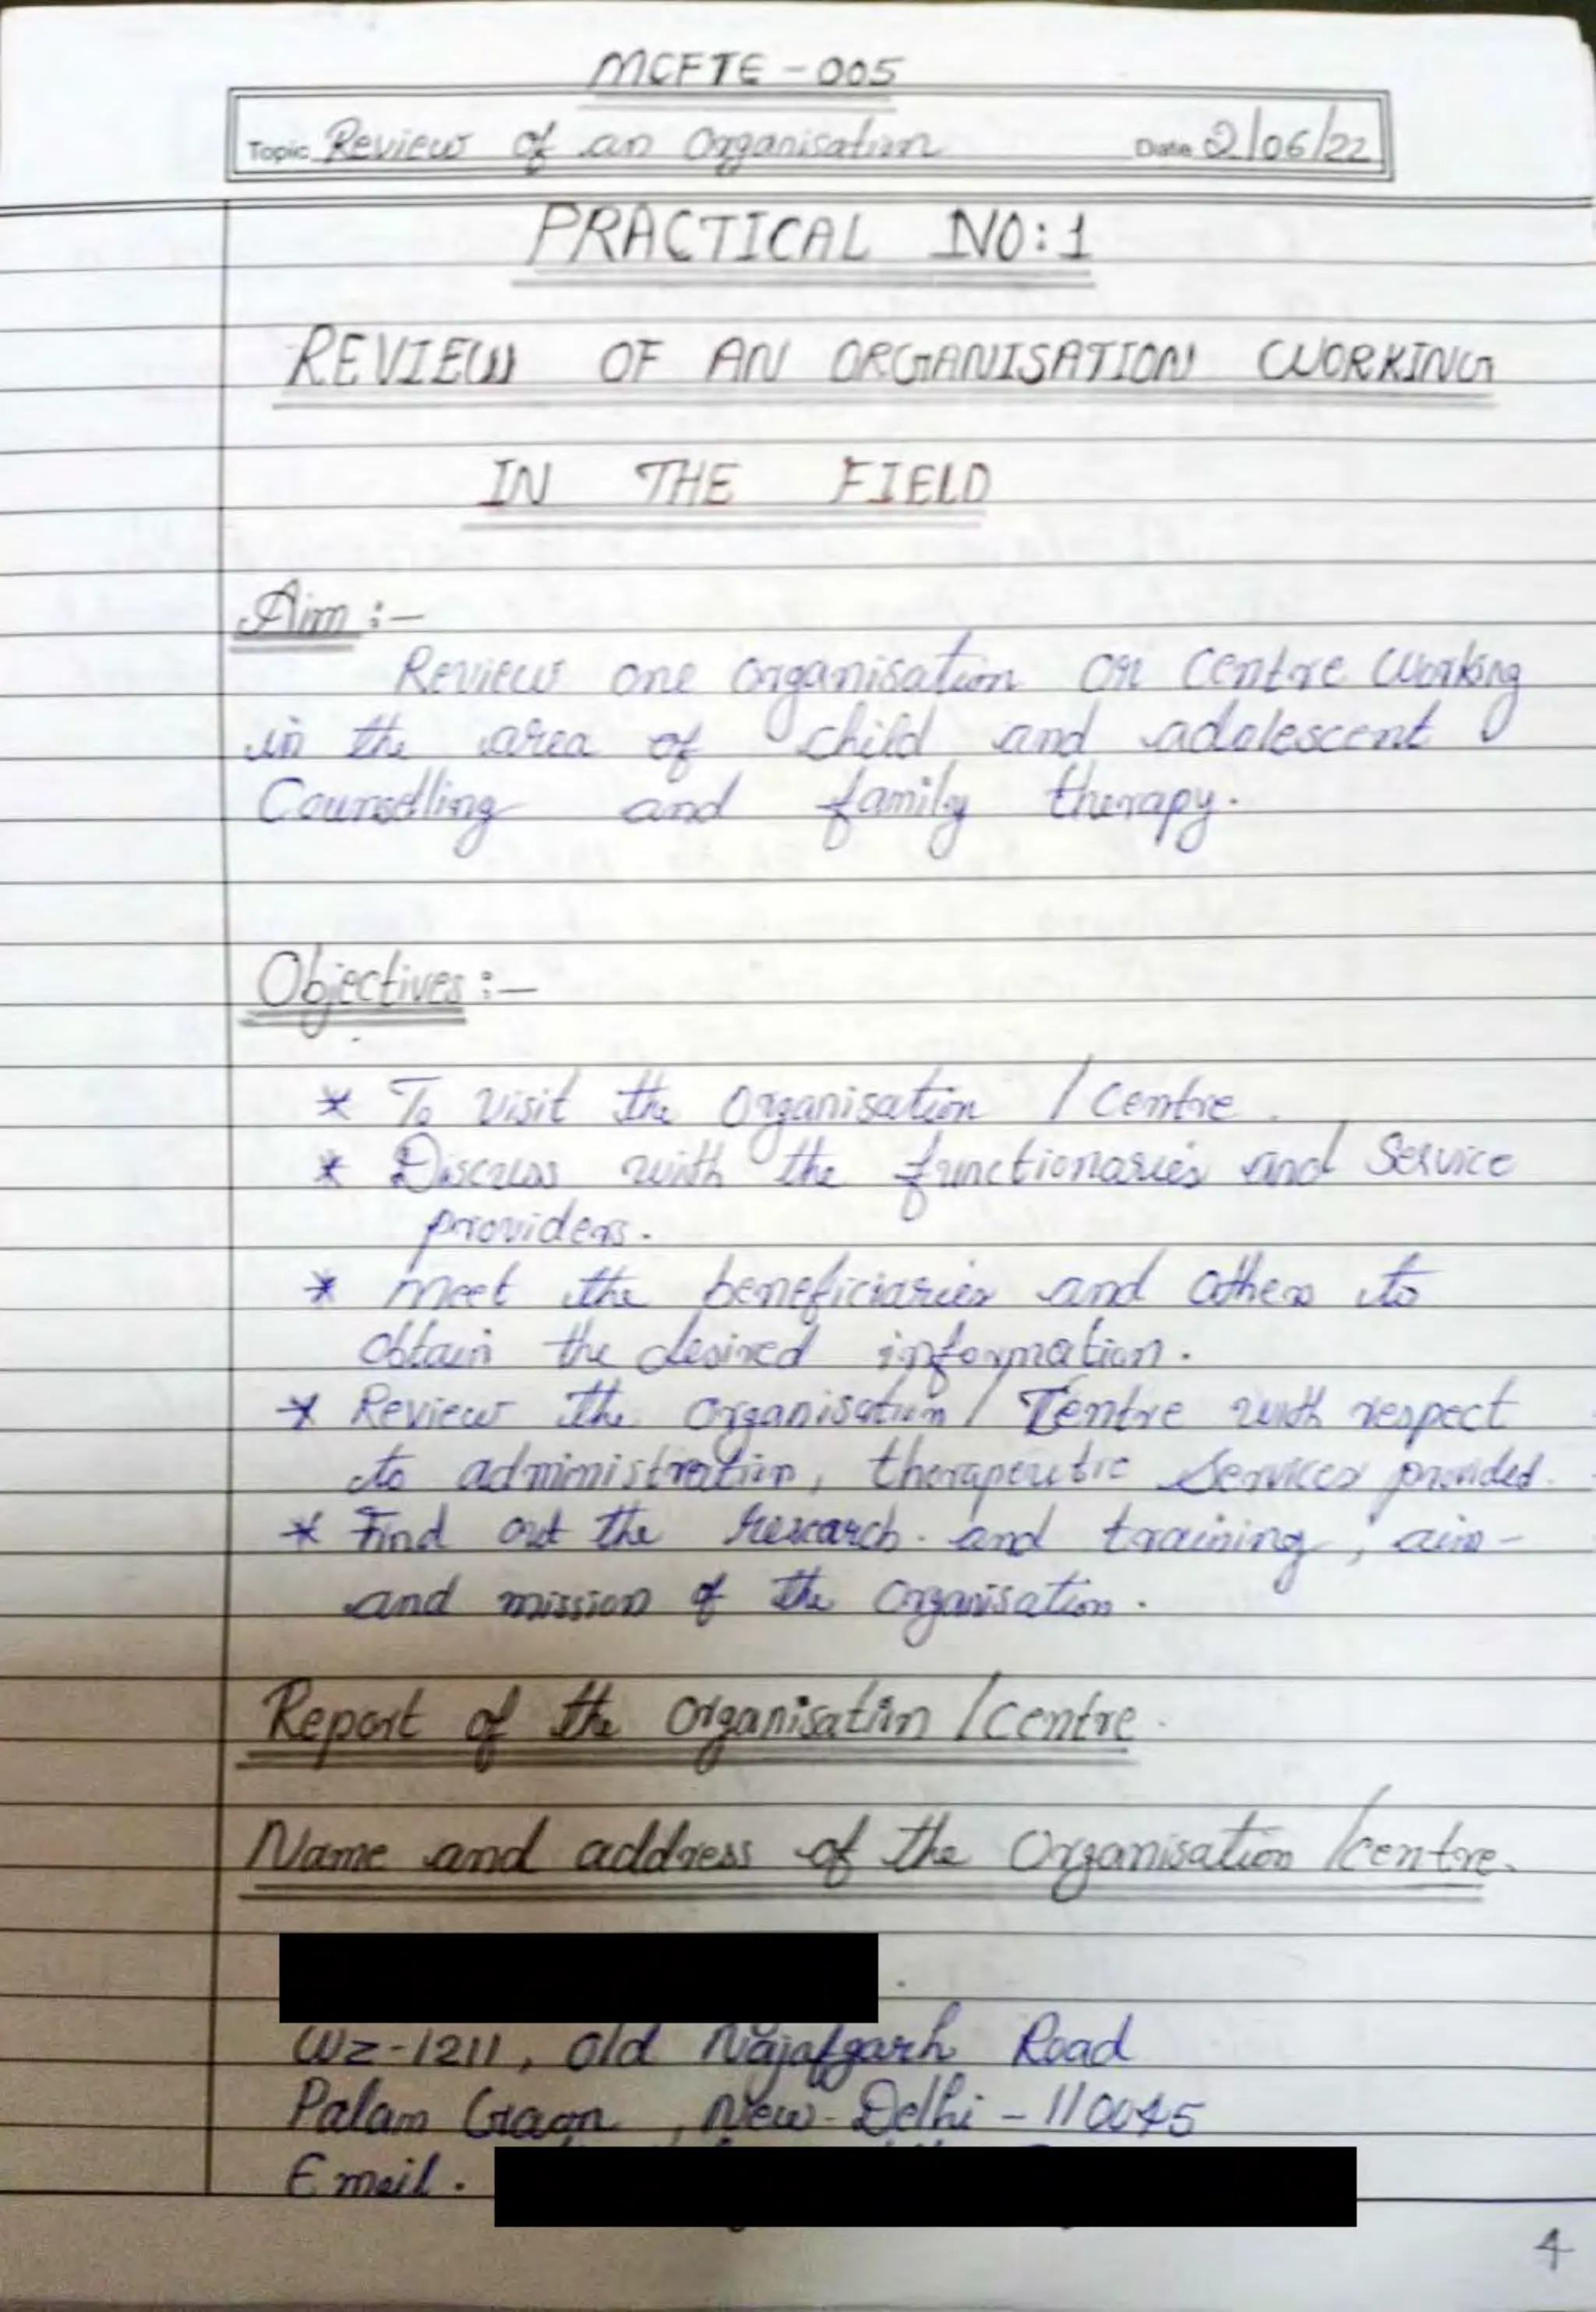 MCFTE - 005
Topic Review of an Organisation Date 2/06/22
PRACTICAL NO:1
REVIEW OF AN ORGANISATION WORKING
IN THE FIELD
Aim :-
Review one organisation or centre working
in the area of child and adolescent
Counselling and family therapy.
Objectives :-
* To visit the organisation / centre.
* Discuss with the functionaries and service
providers.
* Meet the beneficiaries and others to
obtain the desired information.
* Review the organisation / Centre with respect
to administration, therapeutic services provided.
* Find out the research and training, aim-
and mission of the organisation.
Report of the Organisation / centre.
Name and address of the Organisation / centre.
WZ-1211, old Najafgarh Road
Palam Gaon, New-Delhi - 110045
Email.
4